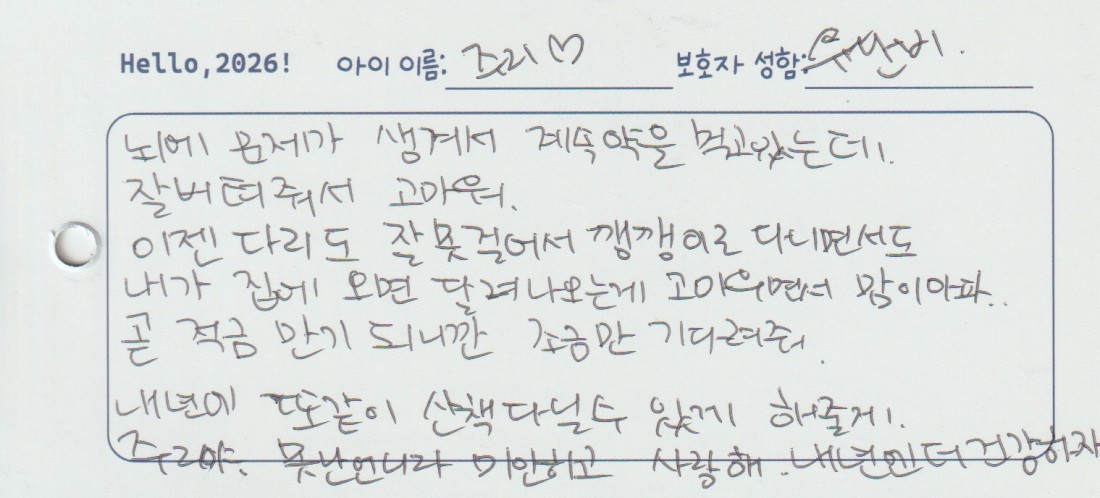 Hello,2026! 아이 이름: 쪼리♡ 보호자 성함:
뇌에 문제가 생겨서 계속약을 먹고있는데.
잘버텨줘서 고마워.
이젠 다리도 잘못걸어서 깽깽이로 다니면서도
내가 집에 오면 달려나오는게 고마우면서 맘이아파..
곧 적금 만기 되니깐 조금만 기다려줘.
내년에 또같이 산책다닐수 있게 해줄게.
못난언니라 미안하고 사랑해. 내년엔더건강하자